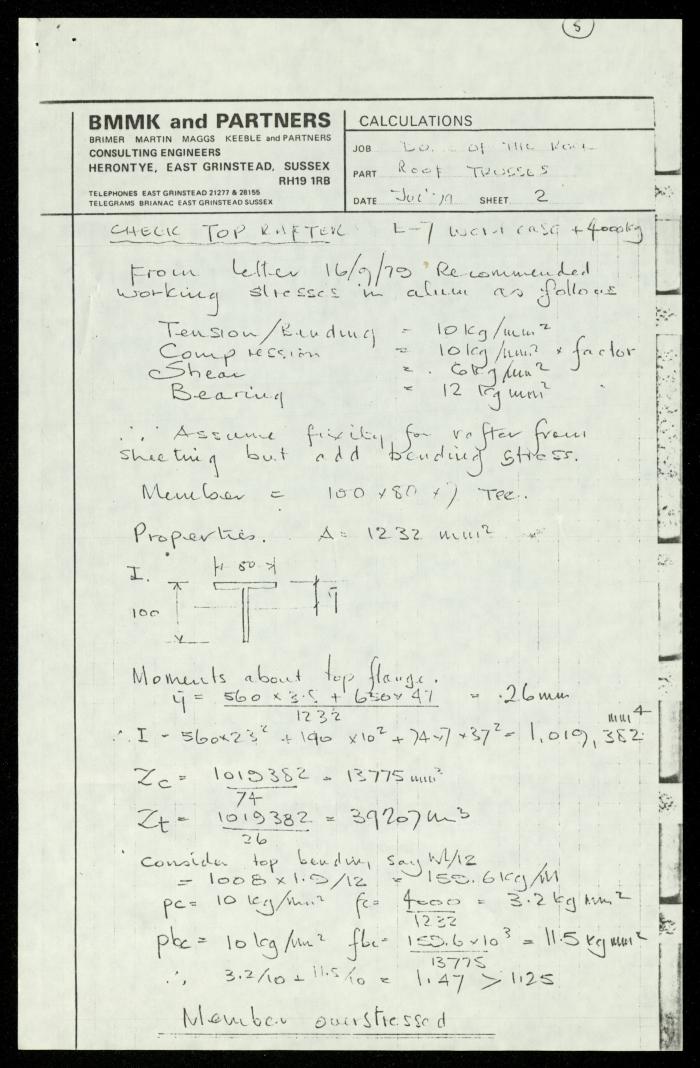 5
BMMK and PARTNERS
BRIMER MARTIN MAGGS KEEBLE and PARTNERS
CONSULTING ENGINEERS
HERONTYE, EAST GRINSTEAD, SUSSEX
RH19 1RB
TELEPHONES EAST GRINSTEAD 21277 & 28155
TELEGRAMS BRIANAC EAST GRINSTEAD SUSSEX
CALCULATIONS
JOB OF THE
PART ROOF TRUSSES
DATE SHEET 2
CHECK TOP RAFTER case + 4000kg
From letter 16/9/79 Recommended
working stresses in alum as follows
Tension/Bending = 10 kg/mm²
Compression = 10 kg/mm² × factor
Shear = 6 kg/mm²
Bearing = 12 kg mm²
∴ Assume fixity for rafter from
sheeting but add bending stress.
Member = 100 × 80 × 7 Tee.
Properties. A = 1232 mm²
I.
80
100
ȳ
Moments about top flange.
ȳ = 560 × 3.5 + 650 × 47 = .26mm
1232
∴ I = 560×23² + 190 ×10² + 74×7 ×37² = 1,019,382 mm⁴
Zc = 1019382 = 13775 mm³
74
Zt = 1019382 = 39207 m³
26
Consider top bending say Wl/12
= 1008 × 1.9/12 = 159.6 kg/M
pc = 10 kg/mm² fc = 4000 = 3.2 kg mm²
1232
pbc = 10 kg/mm² fbc = 159.6 × 10³ = 11.5 kg mm²
13775
∴ 3.2/10 + 11.5/10 = 1.47 > 1.25
Member overstressed